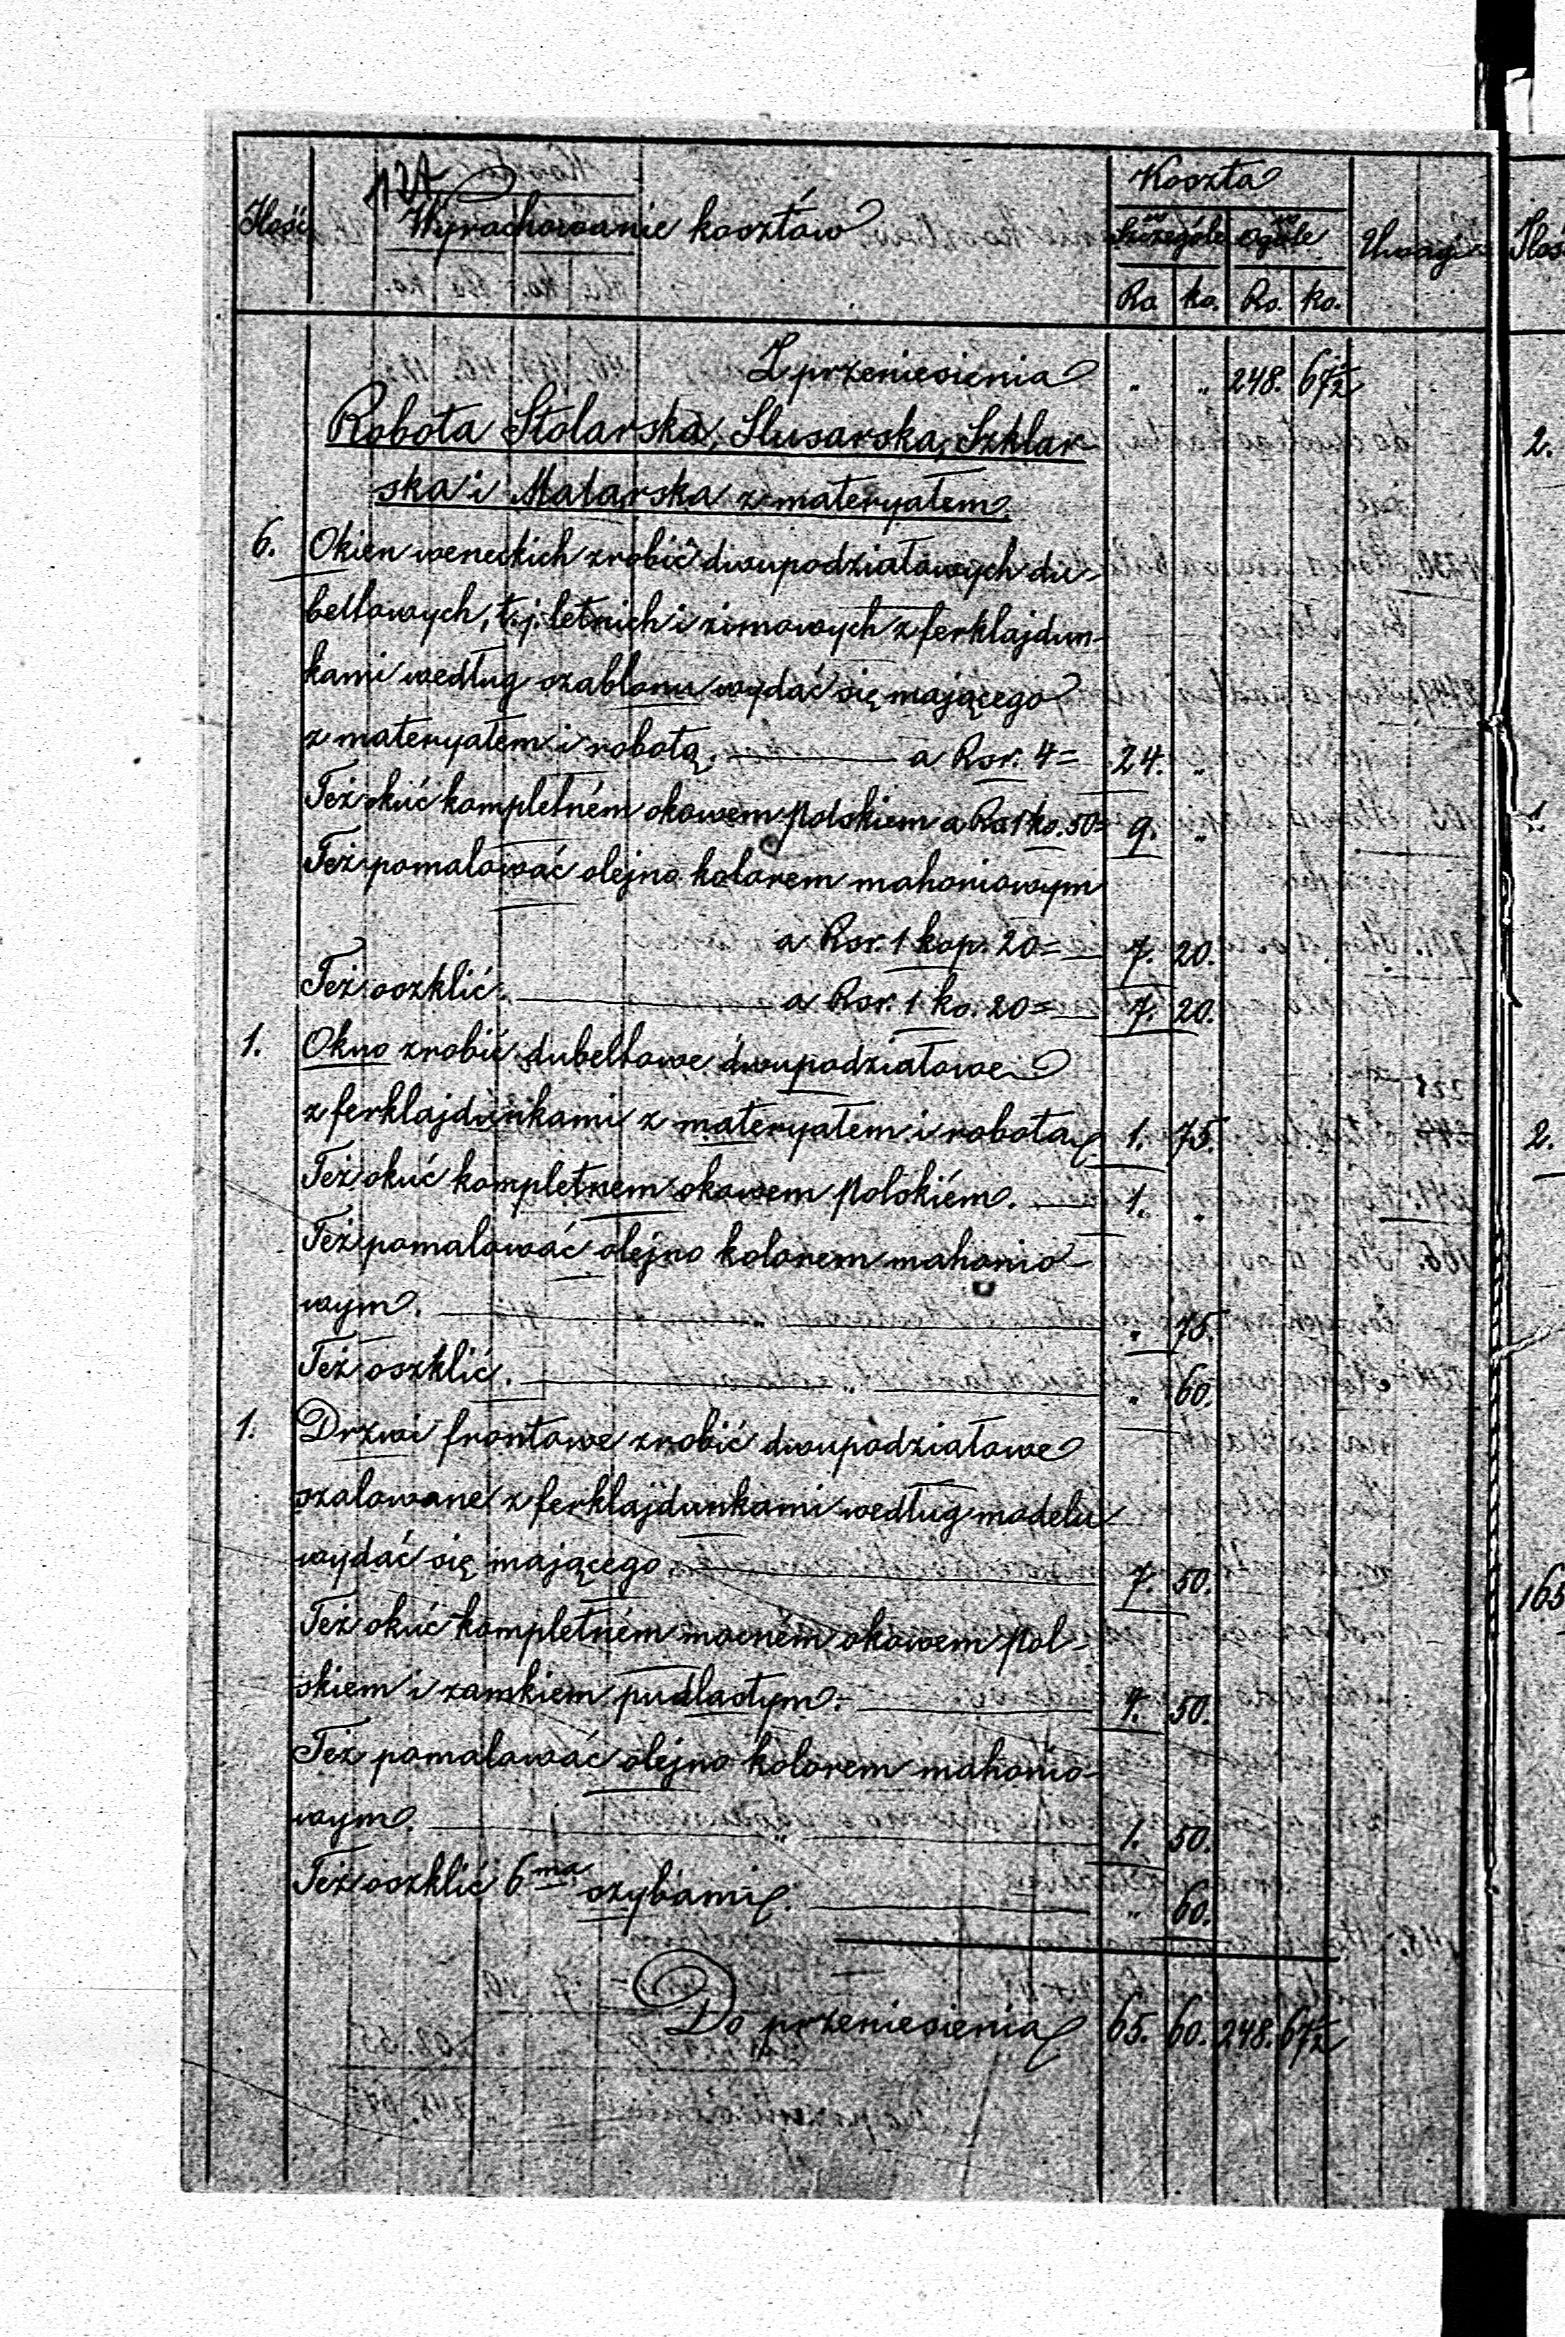 127
Koszta
Ilość Wyrachowanie kosztów w Szczególe w Ogóle Uwagi
Rs. ko. Rs. ko.
Z przeniesienia " " 248. 67½
Robota Stolarska, Slusarska, Szklar-
ska i Malarska z materyałem
6. Okien weneckich zrobić dwupodziałowych du-
beltowych, t.j. letnich i zimowych z ferklajdun-
kami według szablonu wydać się mającego
z materyałem i robotą. a Rsr. 4 = 24. "
Też okuć kompletném okowem polskiem a Rs 1 ko. 50 = 9. "
Też pomalować olejno kolorem mahoniowym
a Rsr. 1 kop. 20 = 7. 20.
Też oszklić. a Rsr. 1 ko. 20 = 7. 20.
1. Okno zrobić dubeltowe dwupodziałowe
z ferklajdunkami z materyałem i robotą 1. 75.
Też okuć kompletnem okowem polskiém. 1. "
Też pomalować olejno kolorem mahonio-
wym. " " 75.
Też oszklić. " " 60.
1. Drzwi frontowe zrobić dwupodziałowe
szalowane z ferklajdunkami według modelu
wydać się mającego. 7. 50.
Też okuć kompletném mocném okowem pol-
skiem i zamkiem pudlastym. 50.
Też pomalować olejno kolorem mahonio-
wym. " 1. 50.
Też oszklić 6ma szybami. " 60.
Do przeniesienia 65. 60. 248. 67½
Ilość
2.
1.
2.
165